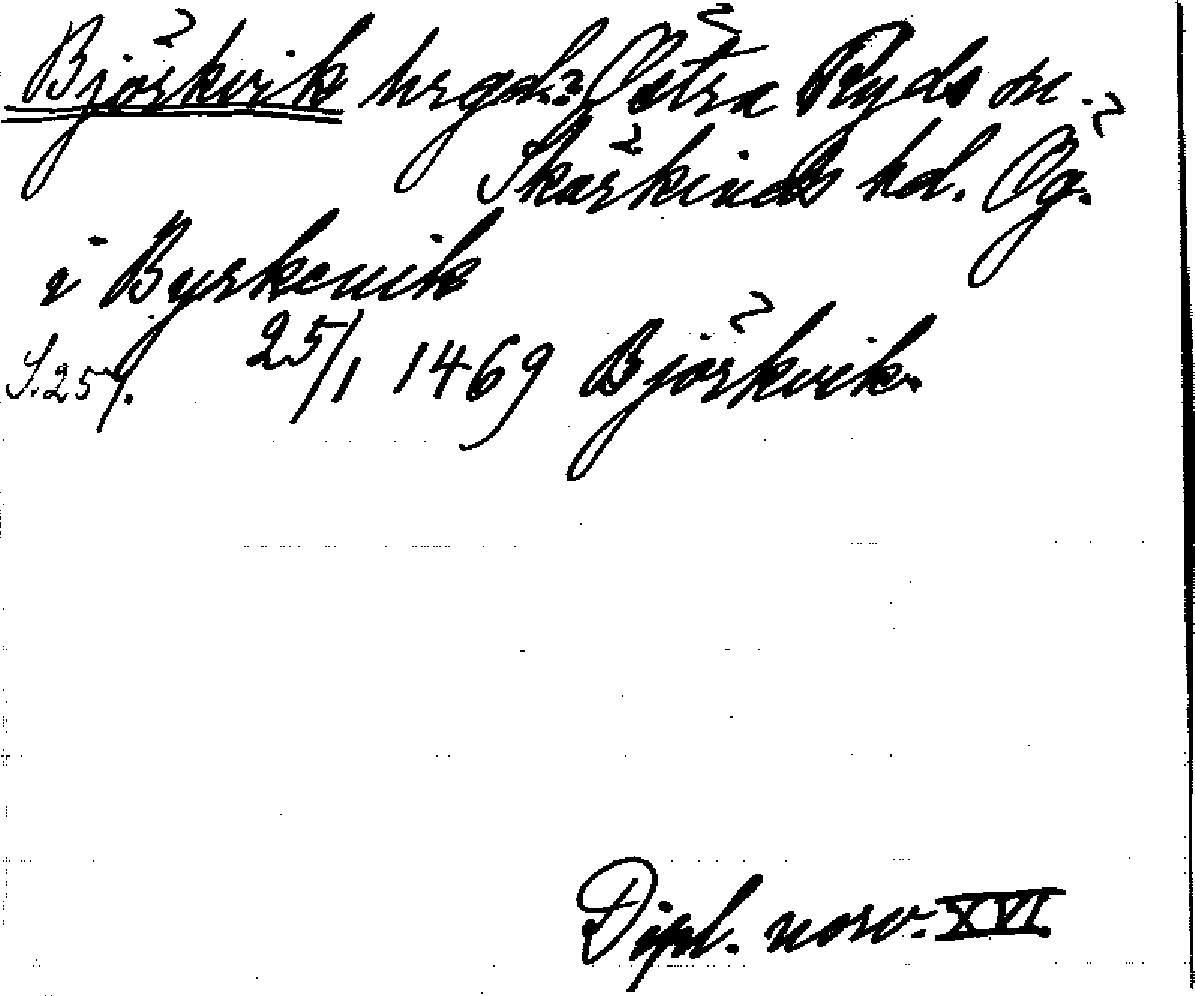 Björkvik hrgd. Östra Ryds sn.
Skärkinds hd. Ög.
i Byrkeuik
S. 257. 25/1 1469 Björkvik.
Dipl. norv. XVI.